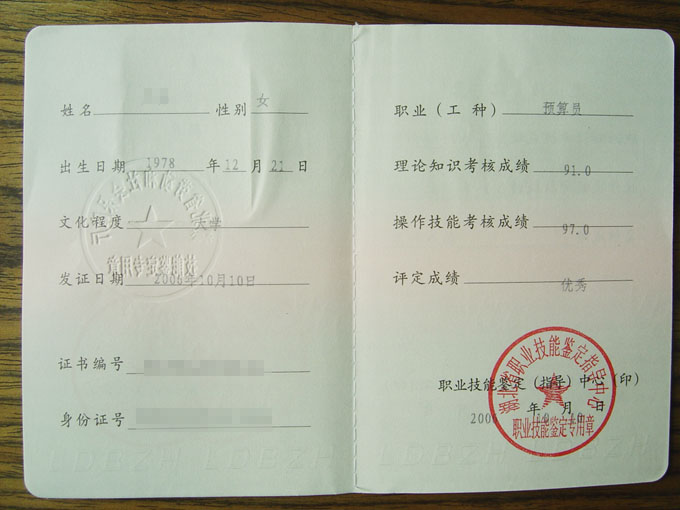 姓名 性别 女
出生日期 1978 年 12 月 21 日
文化程度 大学
发证日期 2006年10月10日
证书编号
身份证号
职业（工 种） 预算员
理论知识考核成绩 91.0
操作技能考核成绩 97.0
评定成绩 优秀
湖北省职业技能鉴定指导中心
职业技能鉴定（指导）中心（印）
2006 年 月 日
职业技能鉴定专用章